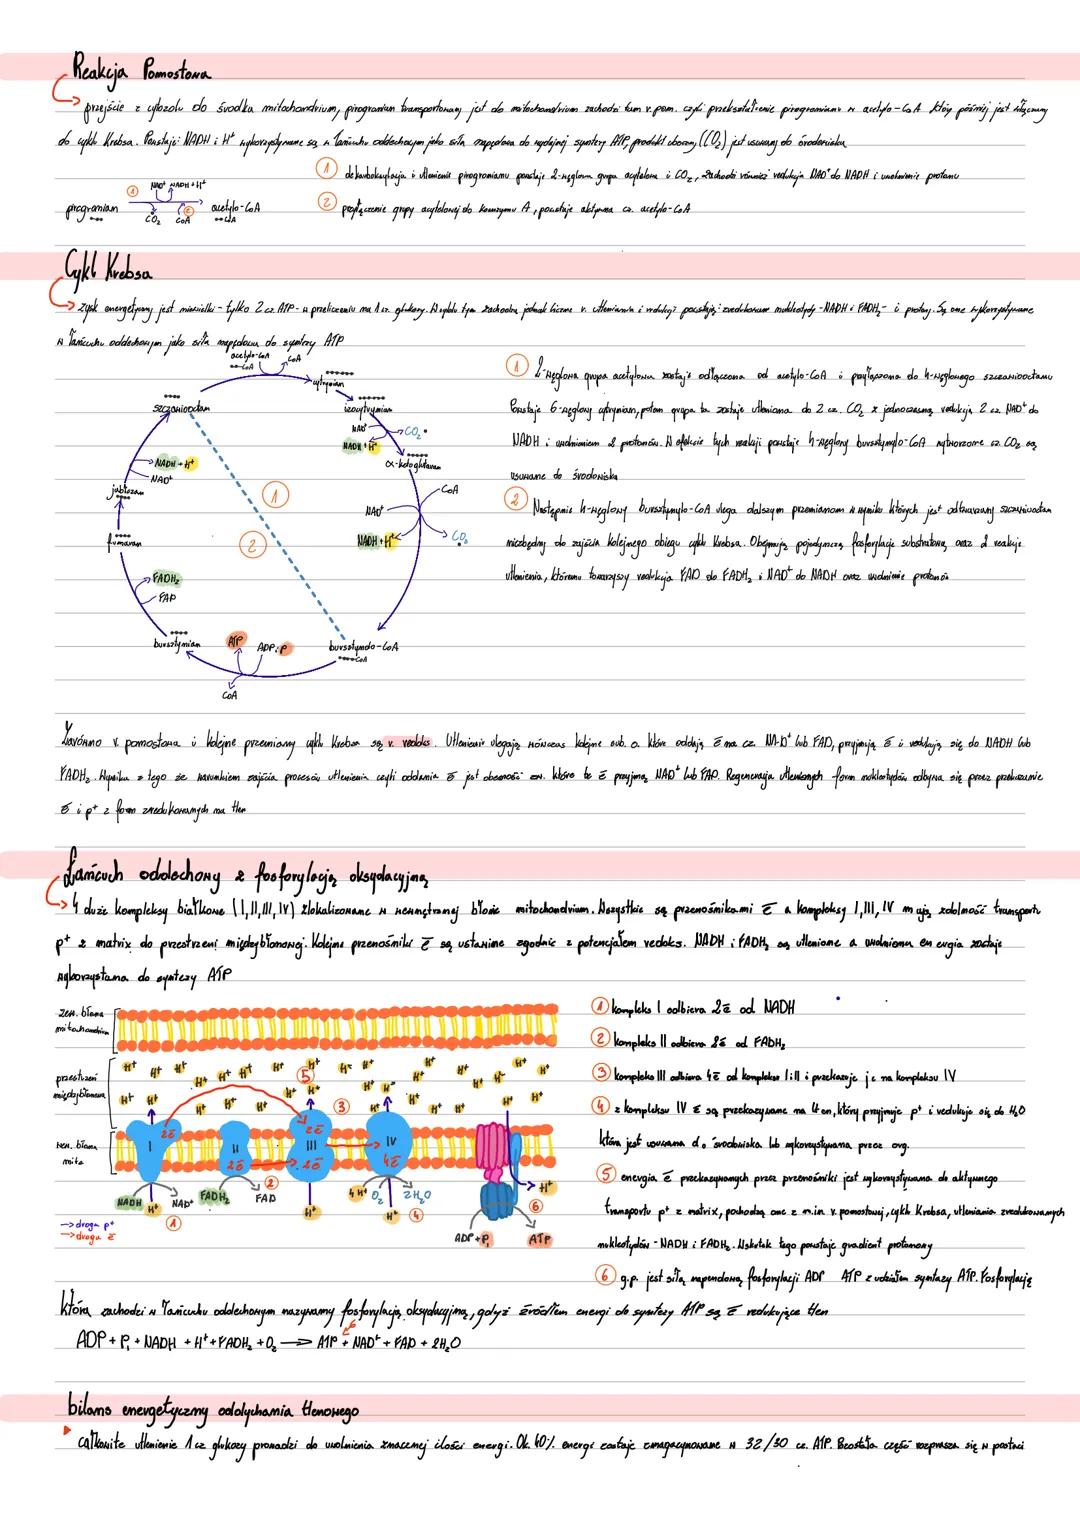 Reakcja Pomostowa
przejście z cytozolu do środka mitochondrium, pirogronian transportowany jest do mitochondrium zachodzi tam r. pom. czyli przekształcenie pirogronianu w acetylo-CoA który później jest włączany
do cyklu Krebsa. Powstaje: NADH i H⁺ wykorzystywane są w łańcuchu oddechowym jako siła napędowa do wydajnej syntezy ATP, produkt uboczny (CO₂) jest usuwany do środowiska
① dekarboksylacja i utlenienie pirogronianu powstaje 2-węglowa grupa acetylowa i CO₂, zachodzi również redukcja NAD⁺ do NADH i uwolnienie protonu
① NAD⁺ NADH+H⁺
pirogronian CO₂ CoA ② acetylo-CoA
② przyłączenie grupy acetylowej do koenzymu A, powstaje aktywna cz. acetylo-CoA
Cykl Krebsa
zysk energetyczny jest niewielki - tylko 2 cz. ATP - w przeliczeniu na 1 cz. glukozy. W cyklu tym zachodzą jednak liczne r. utleniania i redukcji powstają: zredukowane nukleotydy - NADH i FADH₂ - i protony. Są one wykorzystywane
w łańcuchu oddechowym jako siła napędowa do syntezy ATP
acetylo-CoA CoA
-CoA
cytrynian
szczawiooctan
izocytrynian
NAD⁺ CO₂
NADH + H⁺
α-ketoglutaran
CoA
NAD⁺
NADH+H⁺ CO₂
NADH + H⁺
NAD⁺
jabłczan
fumaran
FADH₂
FAD
①
②
bursztynian
ATP ADP+P
bursztynylo-CoA
CoA
CoA
① 2-węglowa grupa acetylowa zostaje odłączona od acetylo-CoA i przyłączona do 4-węglowego szczawiooctanu
Powstaje 6-węglowy cytrynian, potem grupa ta zostaje utleniona do 2 cz. CO₂ z jednoczesną redukcją 2 cz. NAD⁺ do
NADH i uwolnieniem 2 protonów. W efekcie tych reakcji powstaje 4-węglowy bursztynylo-CoA wytworzone cz. CO₂ są
usuwane do środowiska
② Następnie 4-węglowy bursztynylo-CoA ulega dalszym przemianom w wyniku których jest odtwarzany szczawiooctan
niezbędny do zajścia kolejnego obiegu cyklu Krebsa. Obejmują pojedynczą fosforylację substratową oraz 2 reakcje
utlenienia, któremu towarzyszy redukcja FAD do FADH₂ i NAD⁺ do NADH oraz uwolnienie protonów
Zarówno r. pomostowa i kolejne przemiany cyklu Krebsa są r. redoks. Utlenianiu ulegają wówczas kolejne sub. o. które oddają ē na cz. NAD⁺ lub FAD, przyjmują ē i redukują się do NADH lub
FADH₂. Wynika z tego że warunkiem zajścia procesów utlenienia czyli oddania ē jest obecność zw. które te ē przyjmą NAD⁺ lub FAD. Regeneracja utlenionych form nukleotydów odbywa się przez przekazanie
ē i p⁺ z form zredukowanych na tlen
Łańcuch oddechowy z fosforylacją oksydacyjną
4 duże kompleksy białkowe (I,II,III,IV) zlokalizowane w wewnętrznej błonie mitochondrium. Wszystkie są przenośnikami ē a kompleksy I, III, IV mają zdolność transportu
p⁺ z matrix do przestrzeni międzybłonowej. Kolejne przenośniki ē są ustawione zgodnie z potencjałem redoks. NADH i FADH₂ są utleniane a uwolniona energia zostaje
wykorzystana do syntezy ATP
zew. błona
mitochondrium
przestrzeń
międzybłonowa
H⁺ H⁺ H⁺ H⁺ H⁺ H⁺ H⁺ H⁺ H⁺
⑤
③
wew. błona
mito
I 2ē
II 2ē
2ē III 2ē
IV 4ē
②
NADH H⁺ NAD⁺
①
FADH₂ FAD
H⁺
4H⁺ O₂ 2H₂O
H⁺ ④
H⁺
⑥
ADP+Pᵢ ATP
→droga p⁺
→droga ē
① kompleks I odbiera 2ē od NADH
② kompleks II odbiera 2ē od FADH₂
③ kompleks III odbiera 4ē od kompleksu I i II i przekazuje je na kompleksu IV
④ z kompleksu IV ē są przekazywane na tlen, który przyjmuje p⁺ i redukuje się do H₂O
która jest usuwana do środowiska lub wykorzystywana przez org.
⑤ energia ē przekazywanych przez przenośniki jest wykorzystywana do aktywnego
transportu p⁺ z matrix, pochodzą one z m.in. r. pomostowej, cyklu Krebsa, utleniania zredukowanych
nukleotydów - NADH i FADH₂. Wskutek tego powstaje gradient protonowy
⑥ g.p. jest siłą napędową fosforylacji ADP ATP z udziałem syntazy ATP. Fosforylację
która zachodzi w łańcuchu oddechowym nazywamy fosforylacją oksydacyjną, gdyż źródłem energi do syntezy ATP są ē redukujące tlen
ADP + Pᵢ + NADH + H⁺ + FADH₂ + O₂ → ATP + NAD⁺ + FAD + 2H₂O
bilans energetyczny oddychania tlenowego
całkowite utlenienie 1 cz glukozy prowadzi do uwolnienia znacznej ilości energi. Ok. 40% energi zostaje zmagazynowane w 32/30 cz. ATP. Pozostała część rozprasza się w postaci